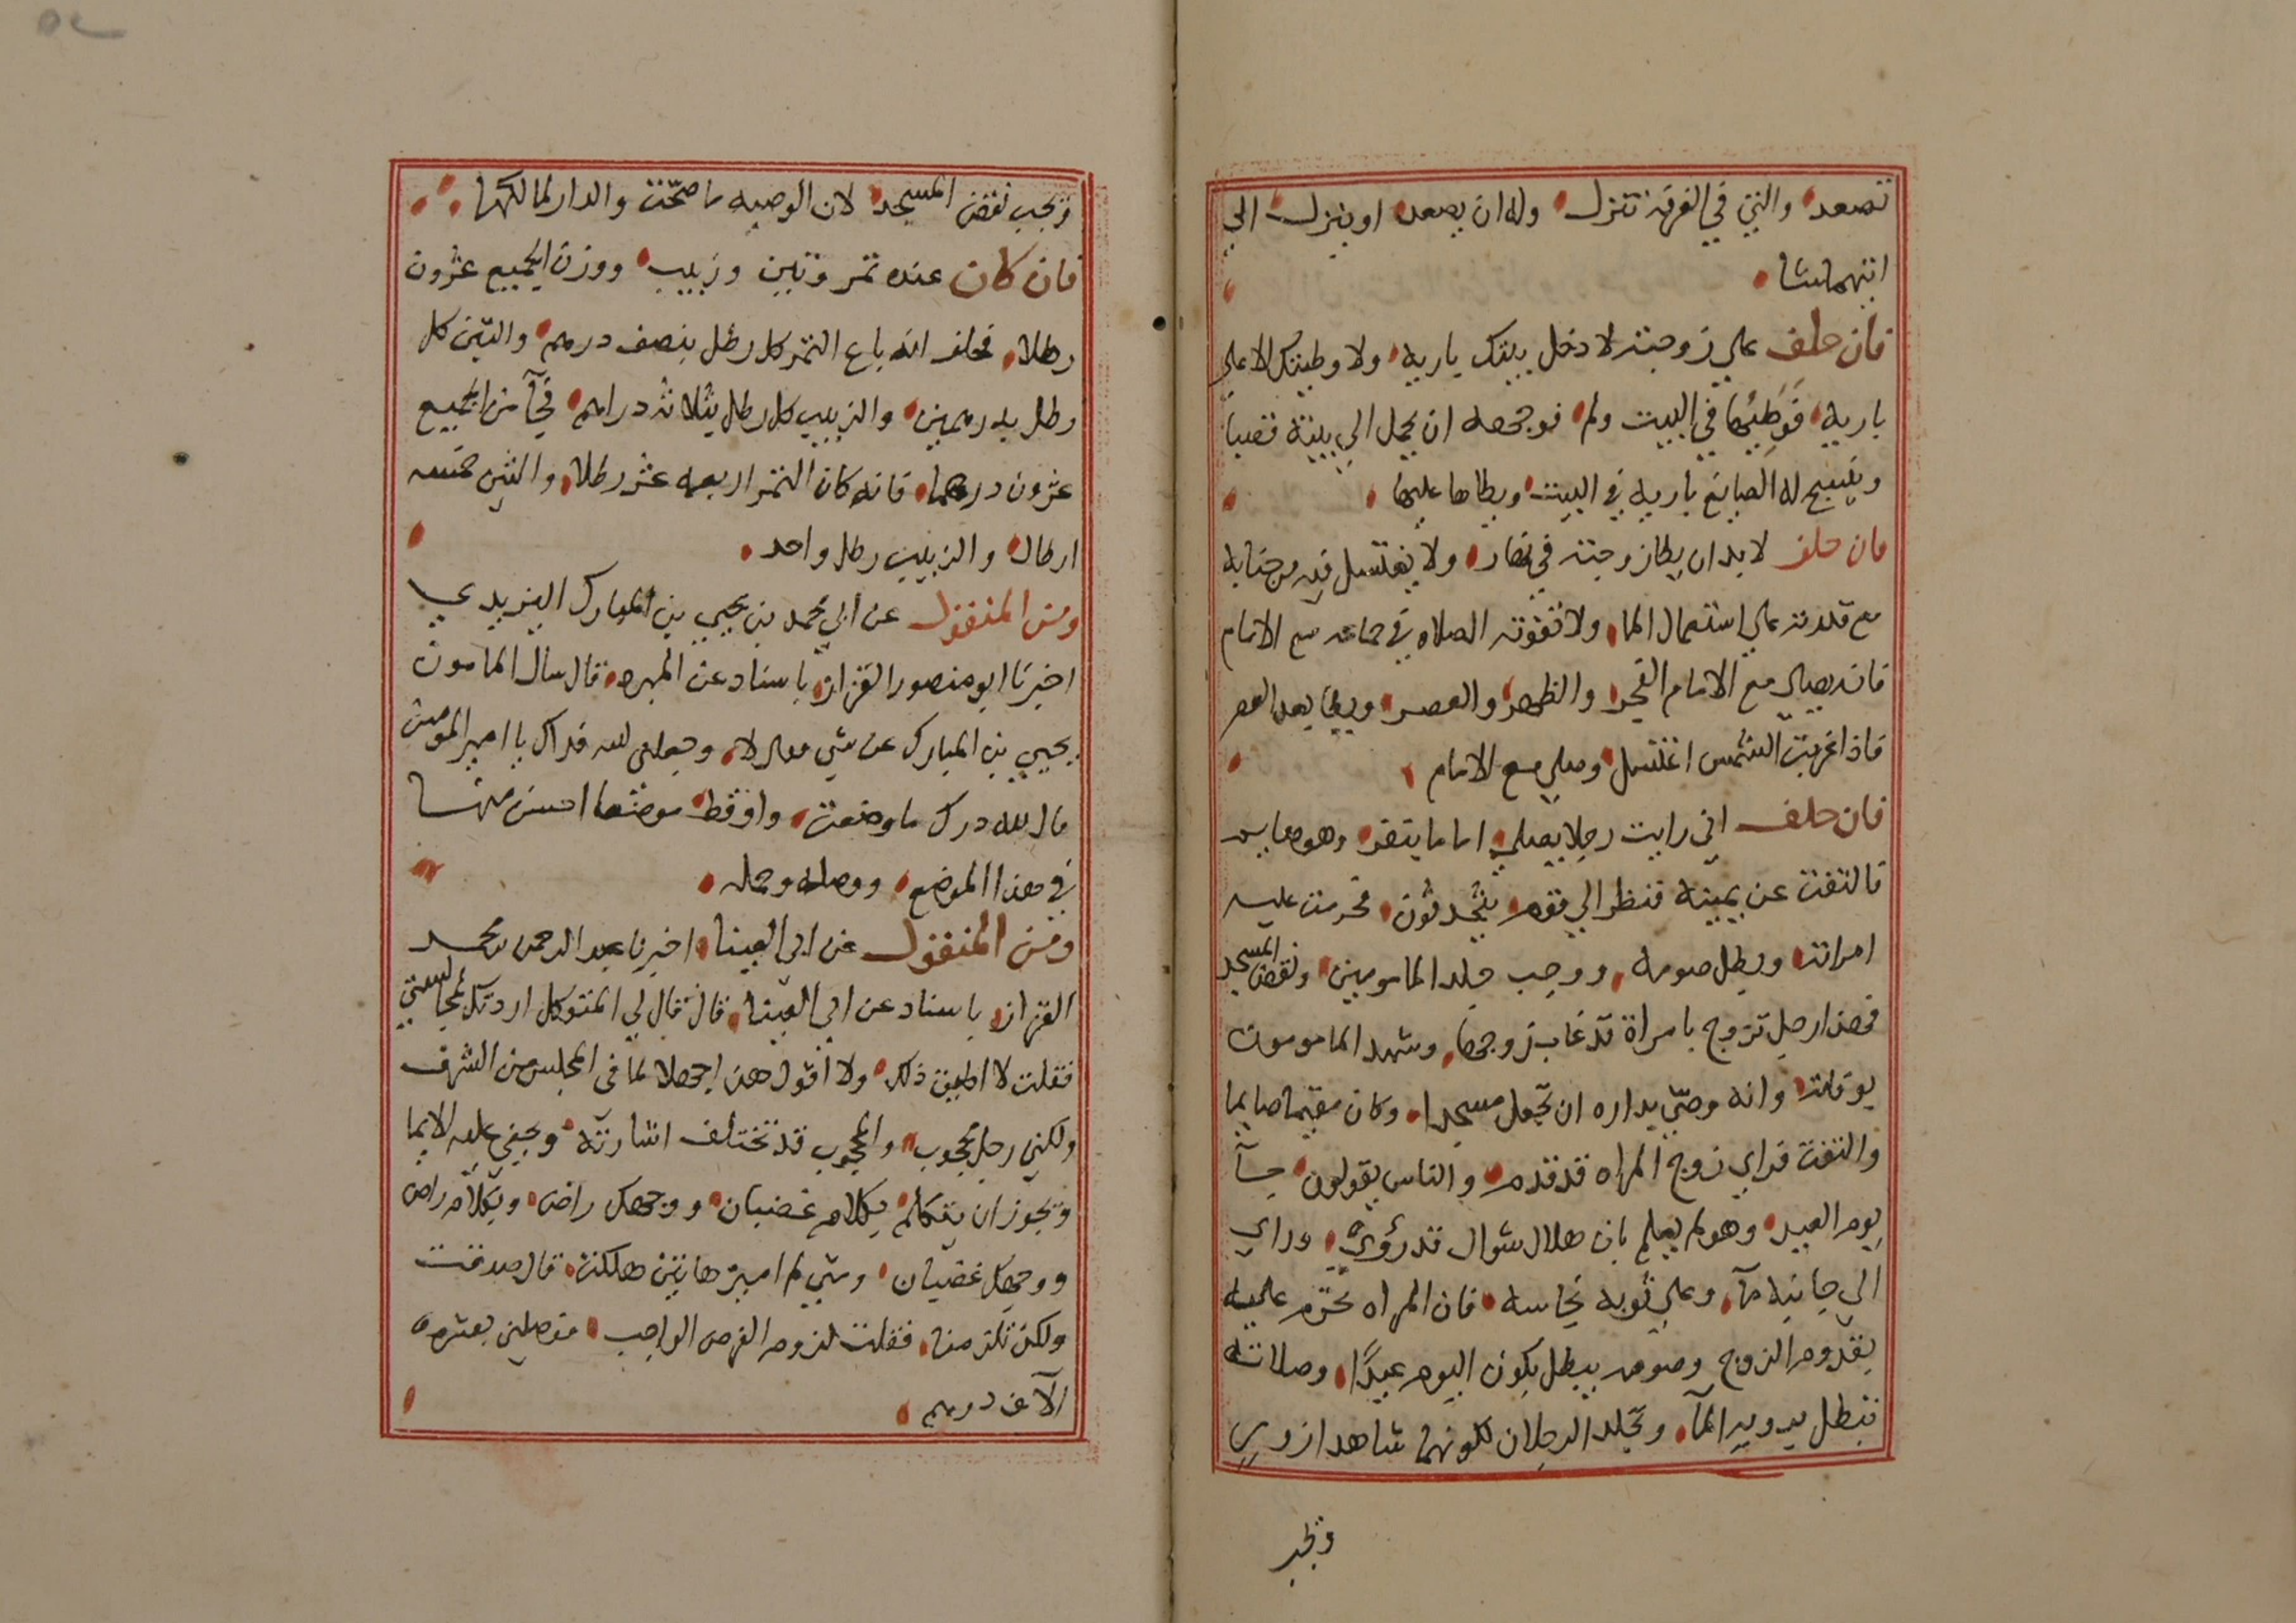 تصعد والتي في الغرفة تنزل وله ان يصعد او ينزل الي
ايتهما شا
فان حلف علي زوجته لا دخل بيتك بارية ولا وطيتك الا علي
بارية فوطئها في البيت ولم فوجهه ان يحمل الي بيته قصبا
وينسج له الصانع بارية في البيت ويطاها عليها
فان حلف لا بد ان يطا زوجته في نهار ولا يغتسل فيه من جنابه
مع قدرته علي استعمال الما ولا تفوته الصلاه في جماعه مع الامام
فانه يصلي مع الامام الفجر والظهر والعصر ويطا بعد العصر
فاذا غربت الشمس اغتسل وصلي مع الامام
فان حلف اني رايت رجلا يصلي اماما بنفر وهو صايم
فالتفت عن يمينه فنظر الي قوم يتحدثون فحرمت عليه
امراته وبطل صومه ووجب جلد المامومين ونقض المسجد
فهذا رجل تزوج بامراة قد غاب زوجها وشهد المامومون
بوفاته وانه وصّي بداره ان تجعل مسجدا وكان مقيما صايما
والتفت فراي زوج المراه قد قدم والناس يقولون جآ
يوم العيد وهو لم يعلم بان هلال شوال قد رؤي وراي
الي جانبه مآ وعلي ثوبه نجاسه فان المراه تحرم عليه
بقدوم الزوج وصومه يبطل بكون اليوم عيدًا وصلاته
تبطل برويه المآ ويجلد الرجلان لكونهما شاهدا زور
ويجب
ويجب نقض المسجد لان الوصيه ما صحّت والدار لمالكها
فان كان عنده تمر وتين وزبيب ووزن الجميع عشرون
رطلا فحلف انه باع التمر كل رطل بنصف درهم والتين كل
رطل بدرهمين والزبيب كل رطل بثلاثه دراهم فجآ من الجميع
عشرون درهما فانه كان التمر اربعه عشر رطلا والتين خمسه
ارطال والزبيب رطل واحد
ومن المنقول عن ابي محمد بن يحيي بن المبارك اليزيدي
اخبرنا ابو منصور القزاز باسناد عن المبرد قال سال المامون
يحيي بن المبارك عن شي فقال لا وجعلني الله فداك يا امير المومنين
فقال لله درك ما وضعت واو قط موضعا احسن منها
في هذا الموضع ووصله وحمله
ومن المنقول عن ابي العينا اخبرنا عبد الرحمن بن محمد
القزاز باسناد عن ابي العينا قال قال لي المتوكل اردتك لمجالستي
فقلت لا اطيق ذلك ولا اقول هذا جهلا لما في المجلس من الشرف
ولكني رجل محجوب والمحجوب قد تختلف اشارته ويخفي عليه الايما
ويجوز ان يتكلم بكلام غضبان ووجهك راض وبكلام راض
ووجهك غضبان ومتي لم اميز هاتين هلكت قال صدقت
ولكن تلزمنا فقلت لزوم الفرض الواجب فوصلني بعشره
الآف درهم